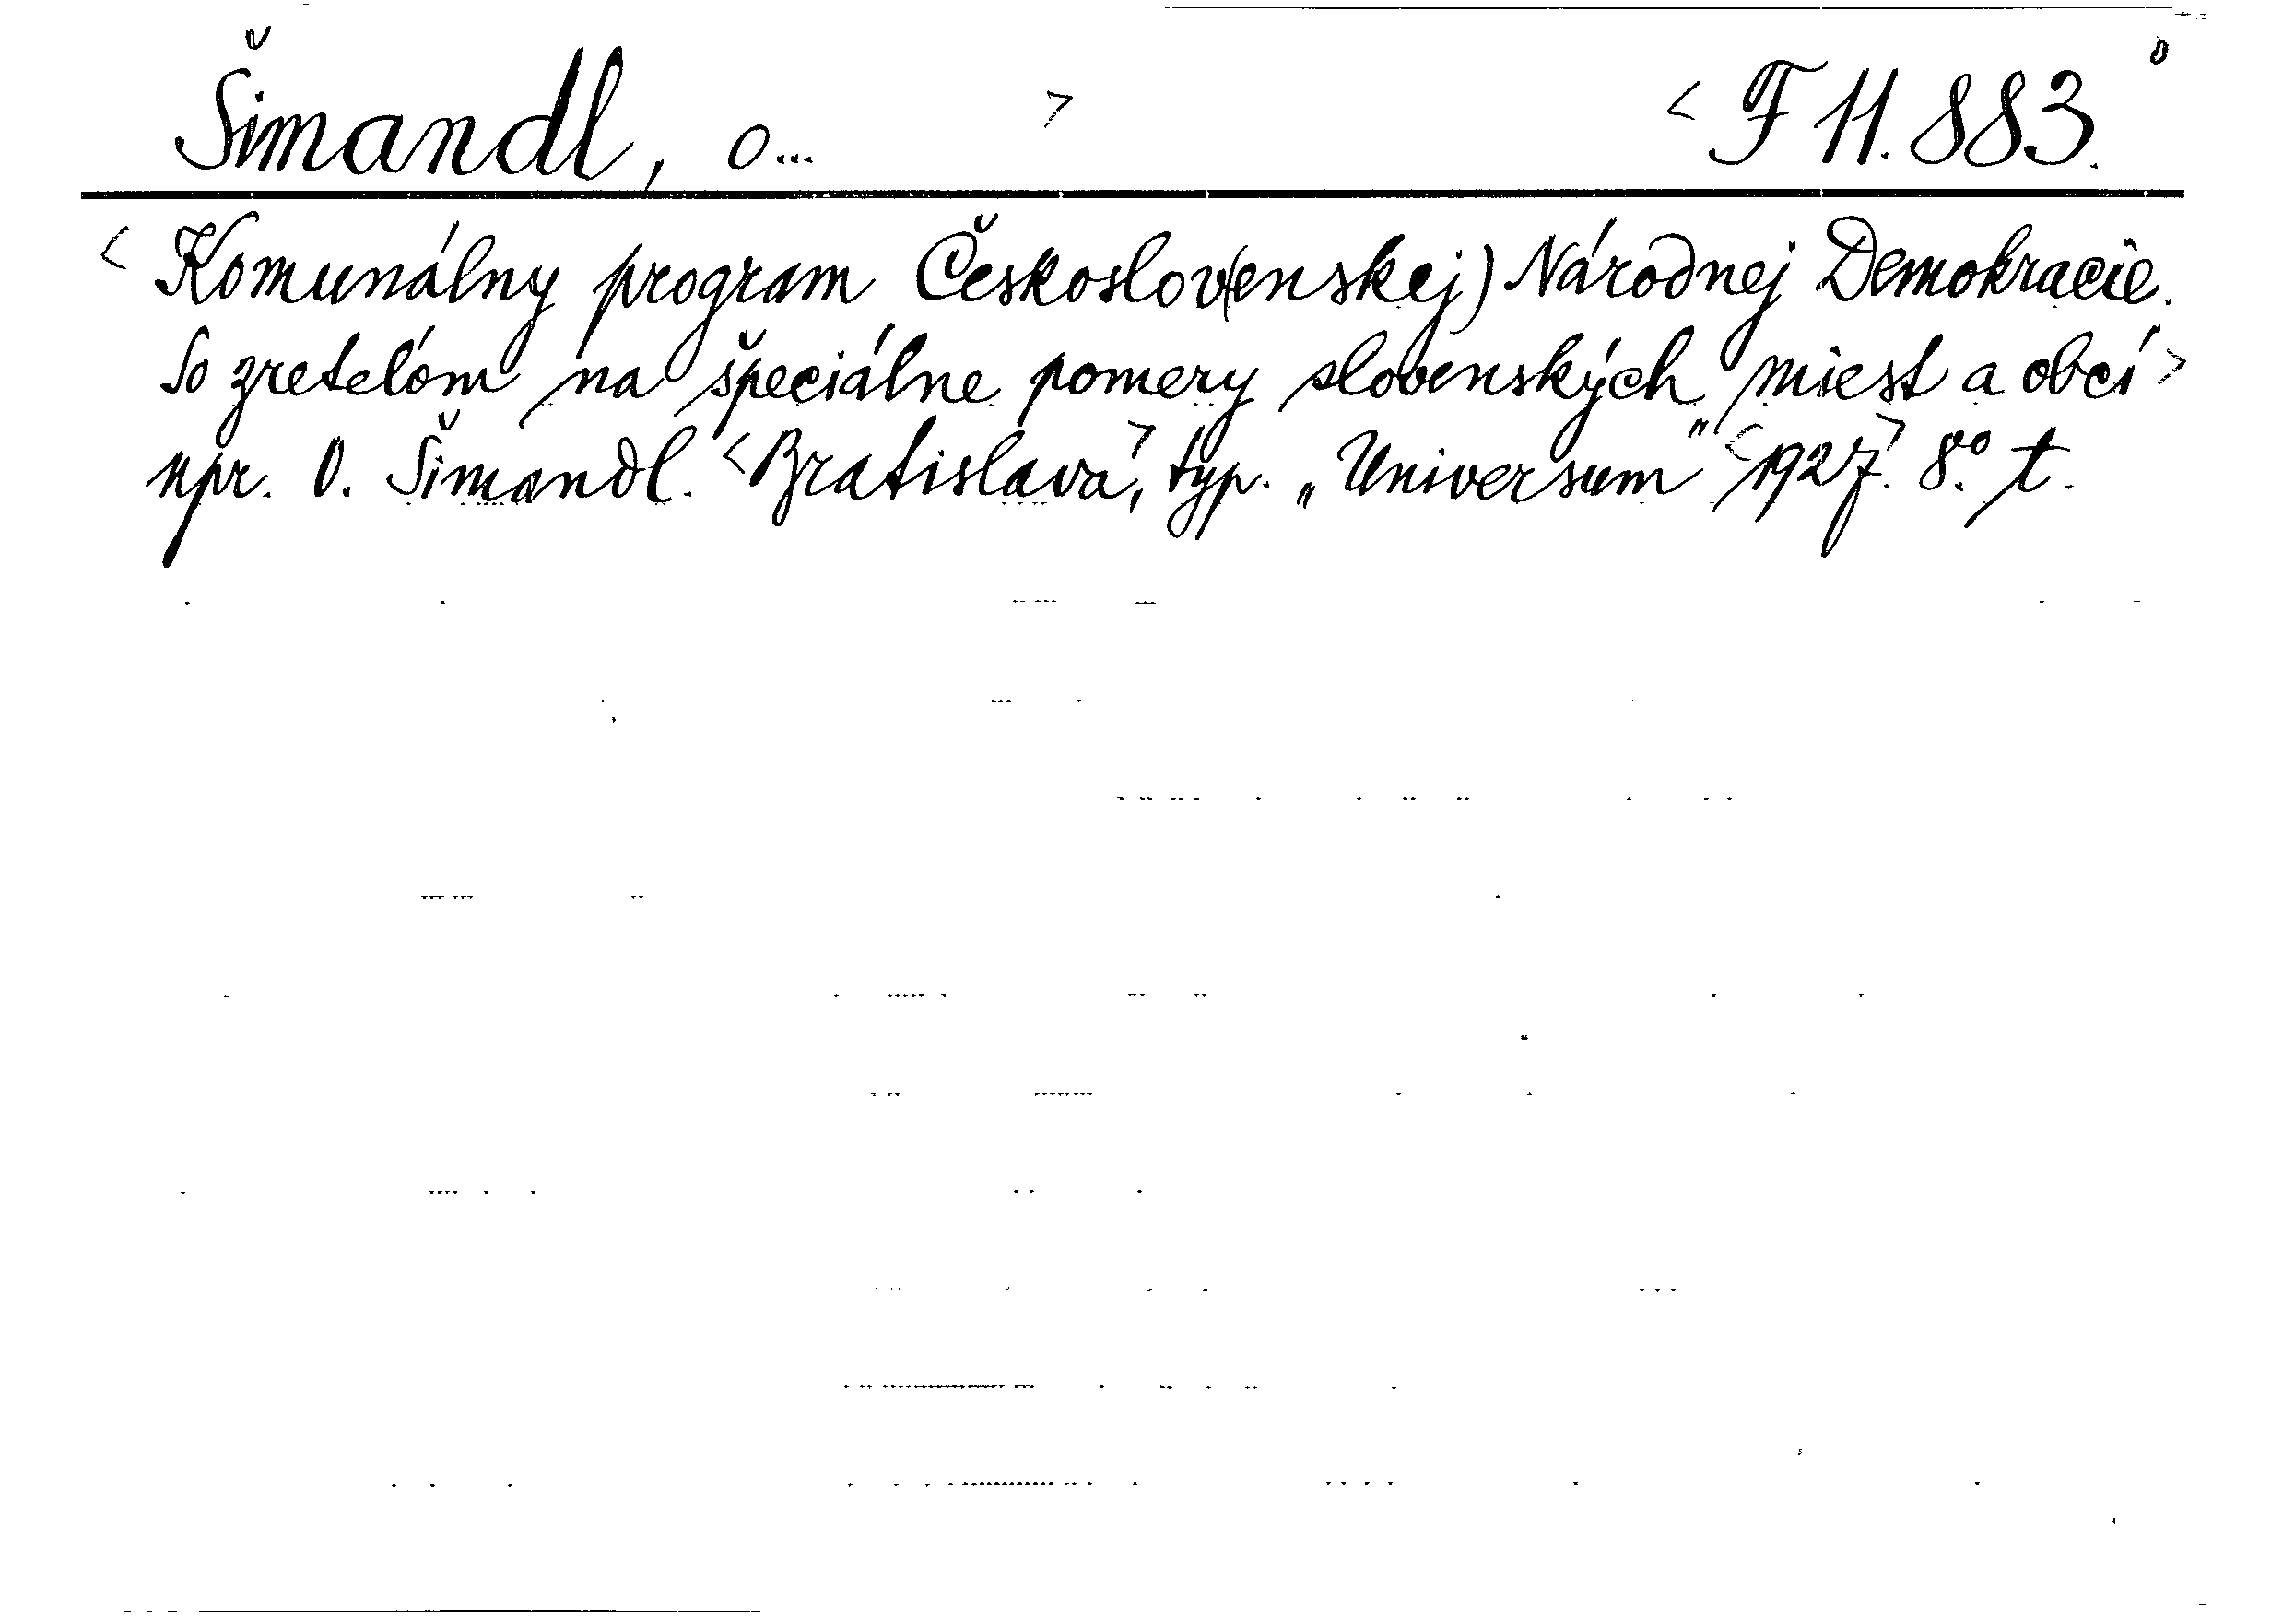 Šimandl, O... > < F 11.883.
< Komunálny program Českoslov(enskej) Národnej Demokracie.
So zreteľom na špeciálne pomery slovenských miest a obcí >
npr. O. Šimandl. < Bratislava, > typ. „Universum" < 1927. > 8°. t.